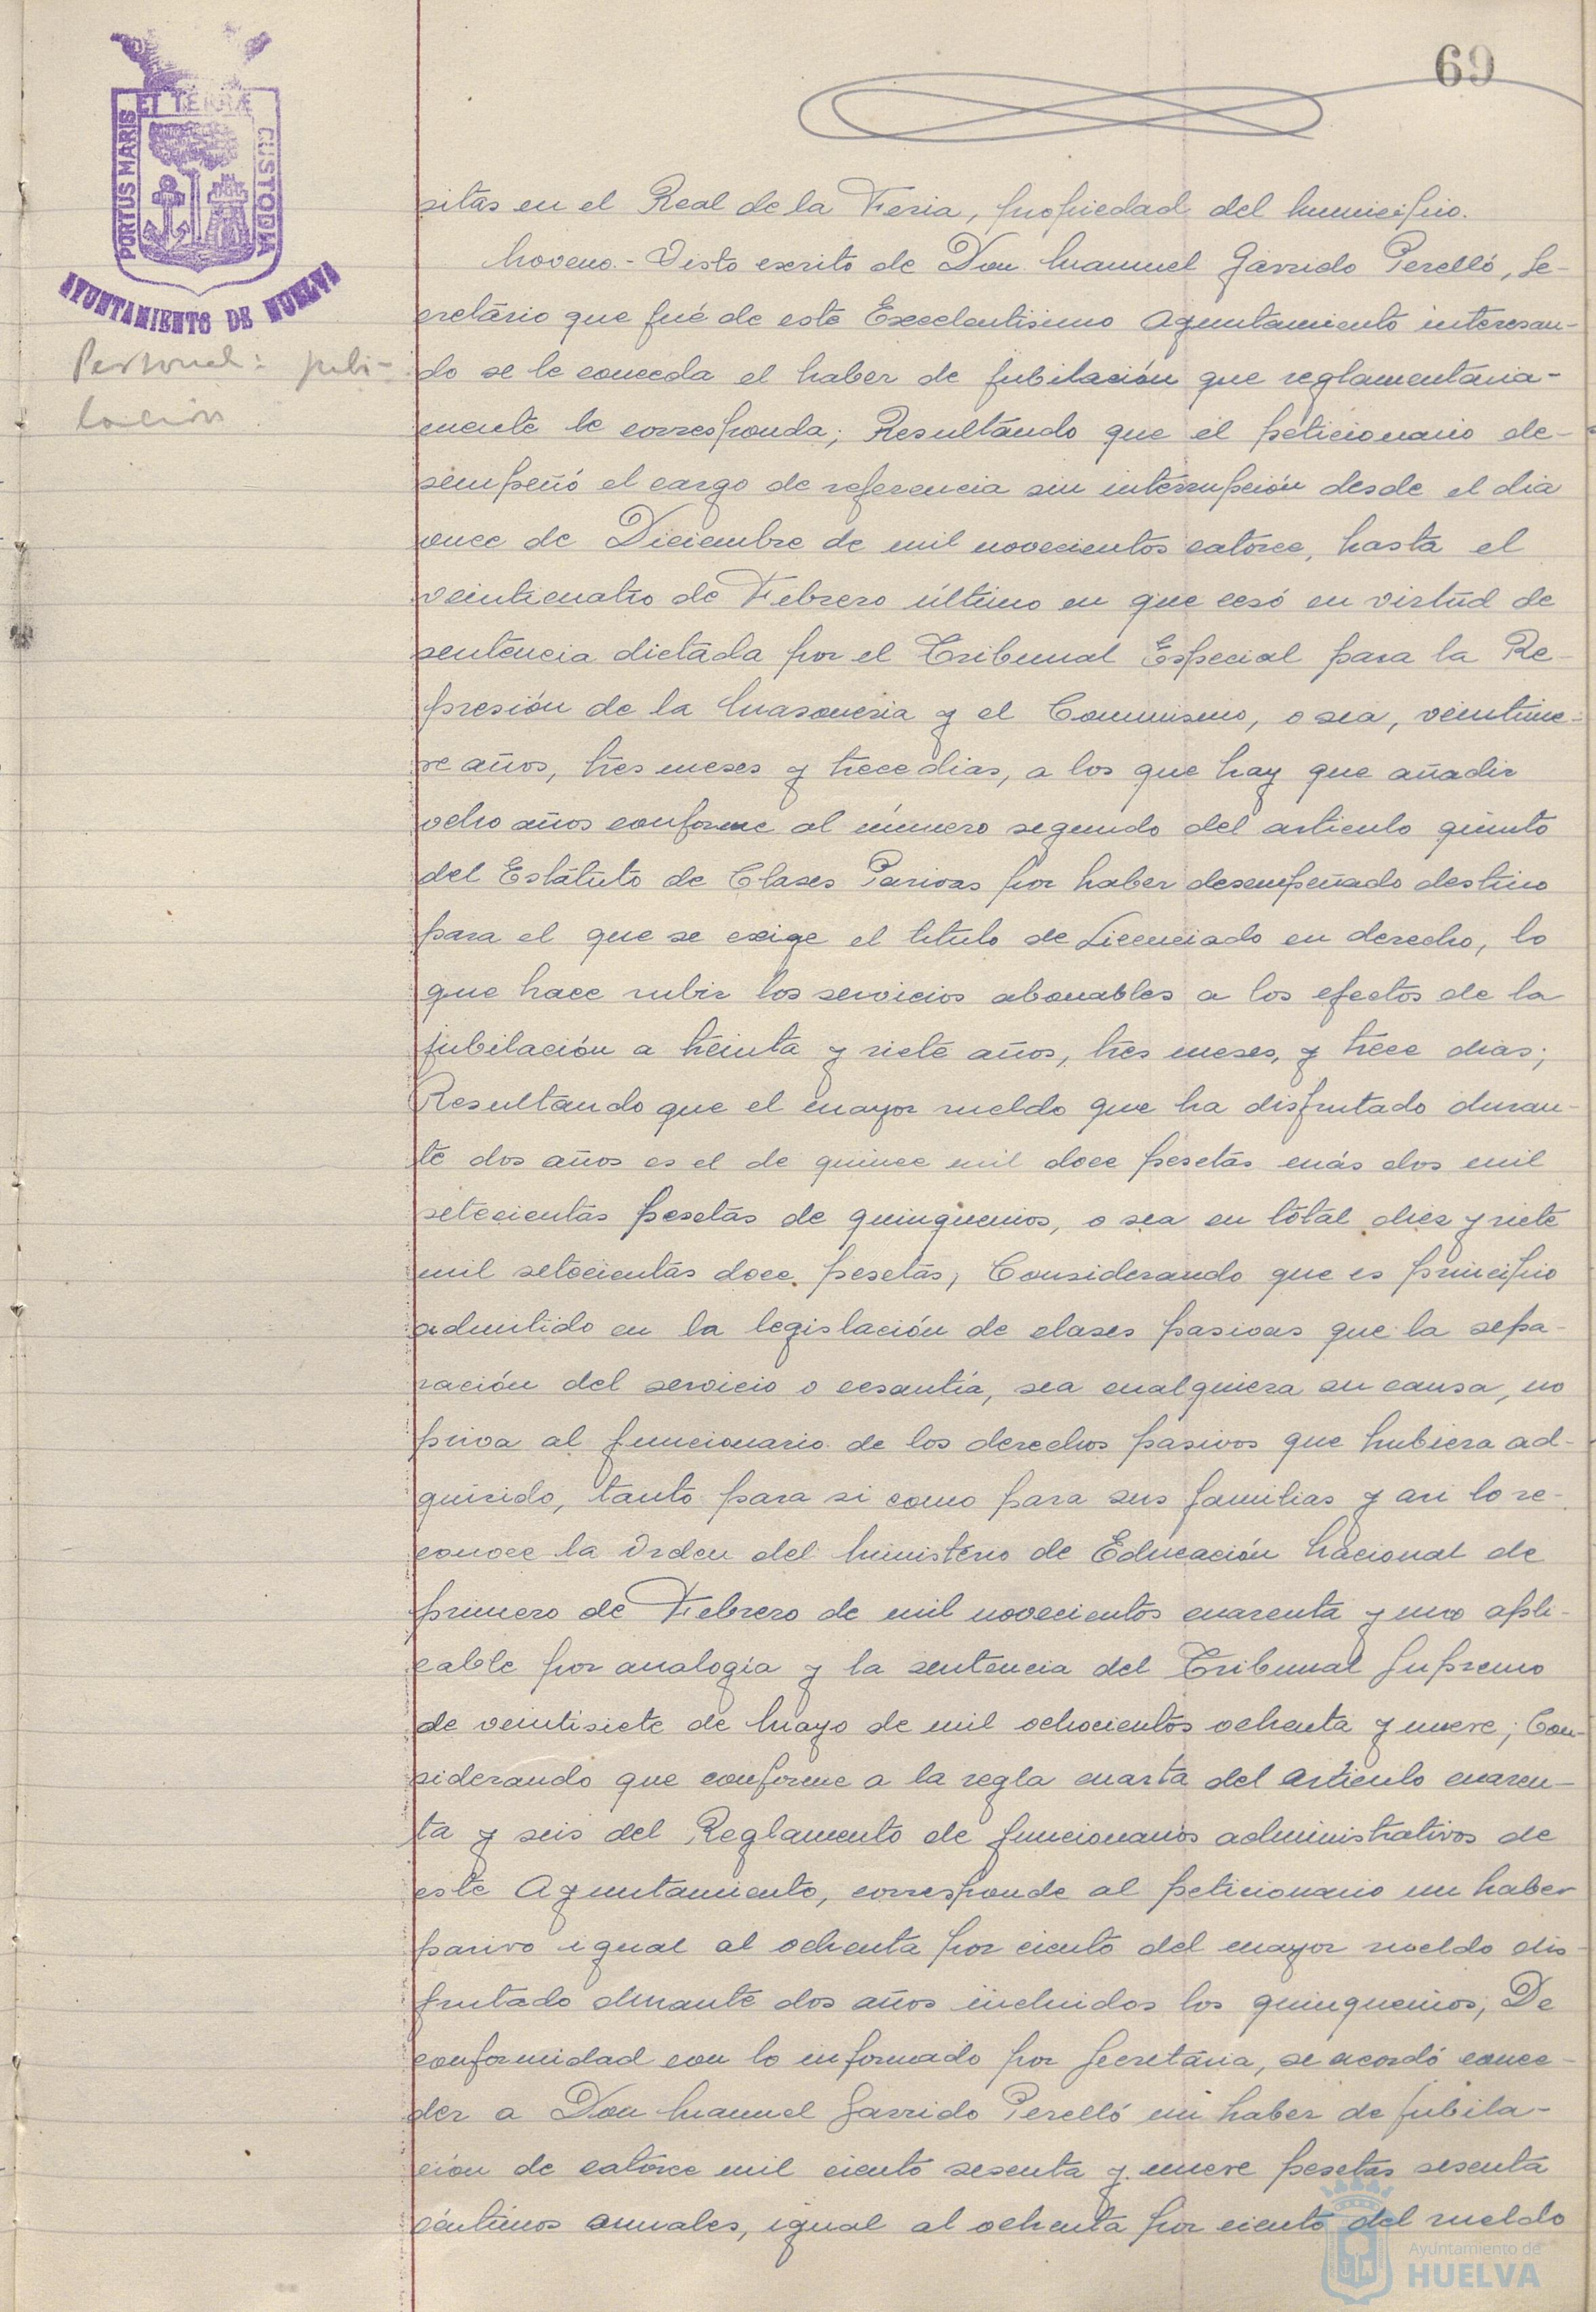 69
PORTUS MARIS ET TERRÆ CUSTODIA
AYUNTAMIENTO DE HUELVA
Personal: jubi-
lación
sitas en el Real de la Feria, propiedad del Municipio.
Noveno.- Visto escrito de Don Manuel Garrido Perelló, Se-
cretario que fué de este Excelentisimo Ayuntamiento interesan-
do se le conceda el haber de jubilación que reglamentaria-
mente le corresponda; Resultando que el peticionario de-
sempeñó el cargo de referencia sin interrupción desde el dia
once de Diciembre de mil novecientos catorce, hasta el
veinticuatro de Febrero último en que cesó en virtud de
sentencia dictada por el Tribunal Especial para la Re-
presión de la Masoneria y el Comunismo, o sea, veintinue-
ve años, tres meses y trece dias, a los que hay que añadir
ocho años conforme al número segundo del articulo quinto
del Estatuto de Clases Pasivas por haber desempeñado destino
para el que se exige el titulo de Licenciado en derecho, lo
que hace subir los servicios abonables a los efectos de la
jubilación a treinta y siete años, tres meses, y trece dias;
Resultando que el mayor sueldo que ha disfrutado duran-
te dos años es el de quince mil doce pesetas más dos mil
setecientas pesetas de quinquenios, o sea en total diez y siete
mil setecientas doce pesetas; Considerando que es principio
admitido en la legislación de clases pasivas que la sepa-
ración del servicio o cesantía, sea cualquiera su causa, no
priva al funcionario de los derechos pasivos que hubiera ad-
quirido, tanto para si como para sus familias y asi lo re-
conoce la Orden del Ministerio de Educación Nacional de
primero de Febrero de mil novecientos cuarenta y uno apli-
cable por analogía y la sentencia del Tribunal Supremo
de veintisiete de Mayo de mil ochocientos ochenta y nueve; Con-
siderando que conforme a la regla cuarta del articulo cuaren-
ta y seis del Reglamento de funcionarios administrativos de
este Ayuntamiento, corresponde al peticionario un haber
pasivo igual al ochenta por ciento del mayor sueldo dis-
frutado durante dos años incluidos los quinquenios; De
conformidad con lo informado por Secretaria, se acordó conce-
der a Don Manuel Garrido Perelló un haber de jubila-
cion de catorce mil ciento sesenta y nueve pesetas sesenta
céntimos anuales, igual al ochenta por ciento del sueldo
Ayuntamiento de
HUELVA